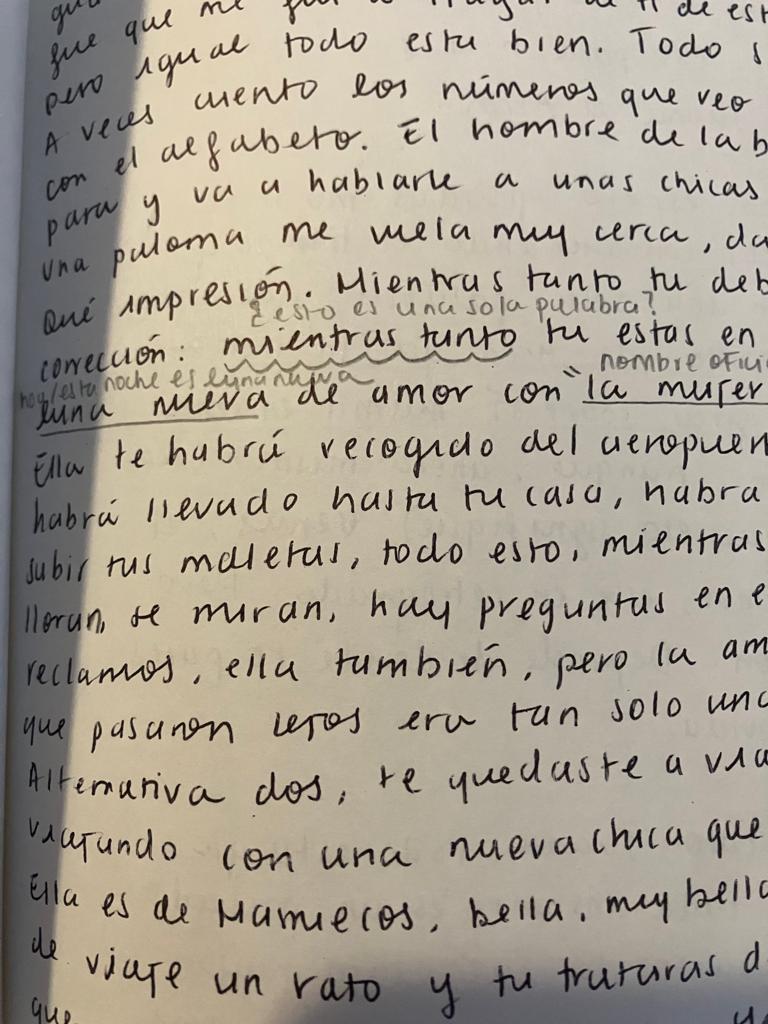 que me
fue que me de ti de est
pero igual todo esta bien. Todo s
A veces cuento los números que veo
con el alfabeto. El hombre de la b
para y va a hablarle a unas chicas
una paloma me vuela muy cerca, da
Qué impresión. Mientras tanto tu deb
¿esto es una sola palabra?
corrección: mientras tanto tu estas en
nombre ofici
hoy/esta noche es luna nueva
luna nueva de amor con "la mujer
Ella te habrá recogido del aeropuer
habrá llevado hasta tu casa, habra
subir tus maletas, todo esto, mientras
lloran, se miran, hay preguntas en e
reclamos, ella también, pero la am
que pasaron lejos era tan solo una
Alternativa dos, te quedaste a via
viajando con una nueva chica que
Ella es de Marruecos, bella, muy bella
de viaje un rato y tu traturas d
que